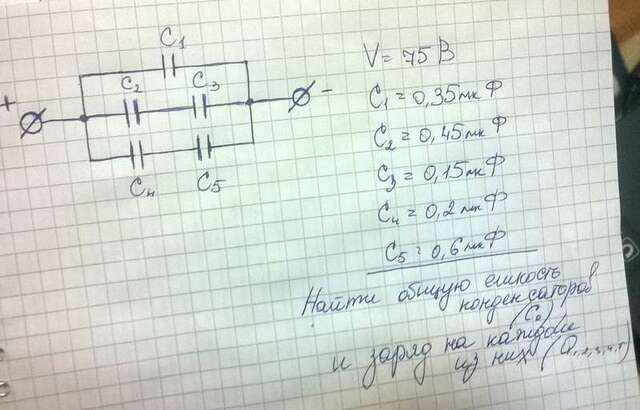 C₁
C₂ C₃
+ -
C₄ C₅
V = 75 В
C₁ = 0,35 мк Ф
C₂ = 0,45 мк Ф
C₃ = 0,15 мк Ф
C₄ = 0,2 мк Ф
C₅ = 0,6 мк Ф
Найти общую емкость
конденсаторов
(C₀)
и заряд на каждом
из них (Q₁,₂,₃,₄,₅)